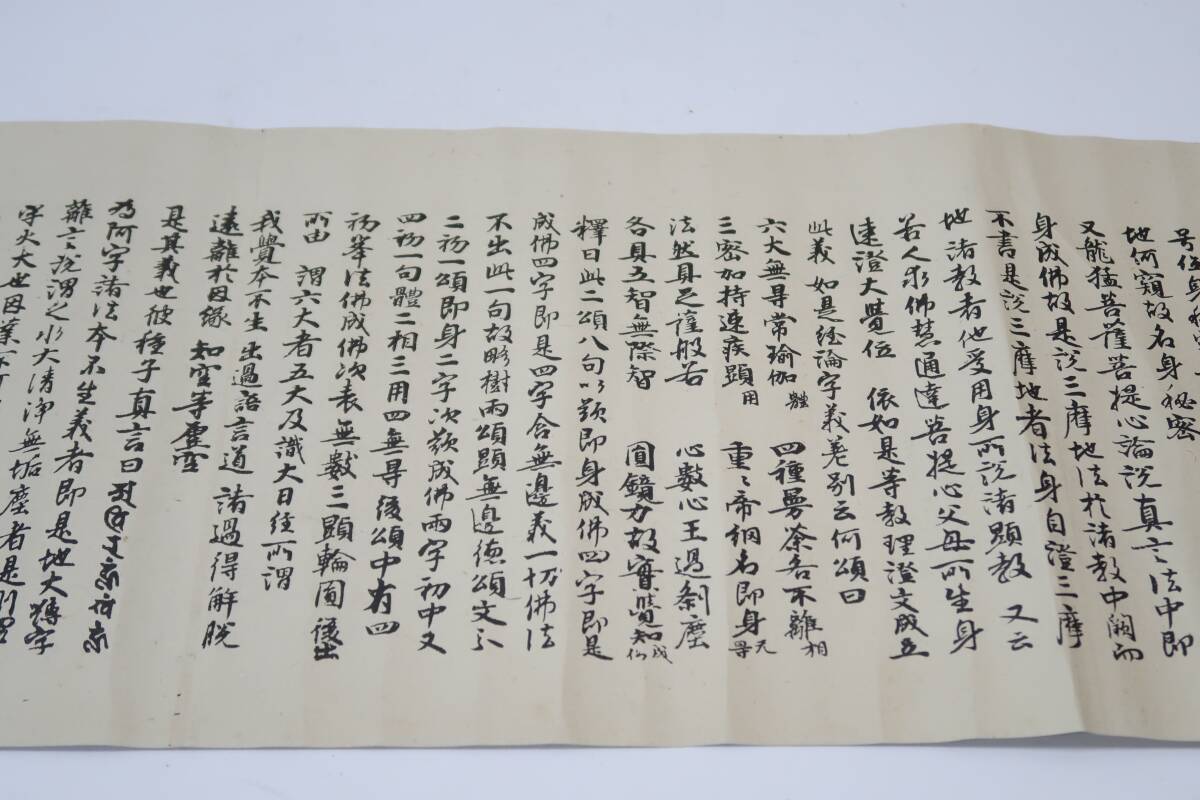 地何窺故名身秘密
又龍猛菩薩菩提心論説真言法中即
身成佛故是説三摩地法於諸教中闕而
不書是説三摩地者法身自證三摩
地諸教者他受用身所説諸顕教 又云
若人求佛慧通達菩提心父母所生身
速證大覺位 依如是等教理證文成立
此義 如是経論字義差別云何頌曰
六大無㝵常瑜伽體 四種曼荼各不離相
三密加持速疾顕用 重〻帝網名即身無㝵
法然具足薩般若 心數心王過刹塵
各具五智無際智 圓鏡力故實覺知成佛
釋曰此二頌八句以歎即身成佛四字即是
成佛四字即是四字含無邊義一切佛法
不出此一句故略樹兩頌顕無邊德頌文分
二初一頌即身二字次歎成佛兩字初中又
四初一句體二相三用四無㝵後頌中有四
初舉法佛成佛次表無數三顕輪圓後出
所由 謂六大者五大及識大日経所謂
我覺本不生 出過語言道 諸過得解脱
遠離於因緣 知空等虚空
是其義也彼種子真言曰
為阿字諸法本不生義者即是地大嚩字
離言説謂之水大清浄無垢塵者是
字火大也因業